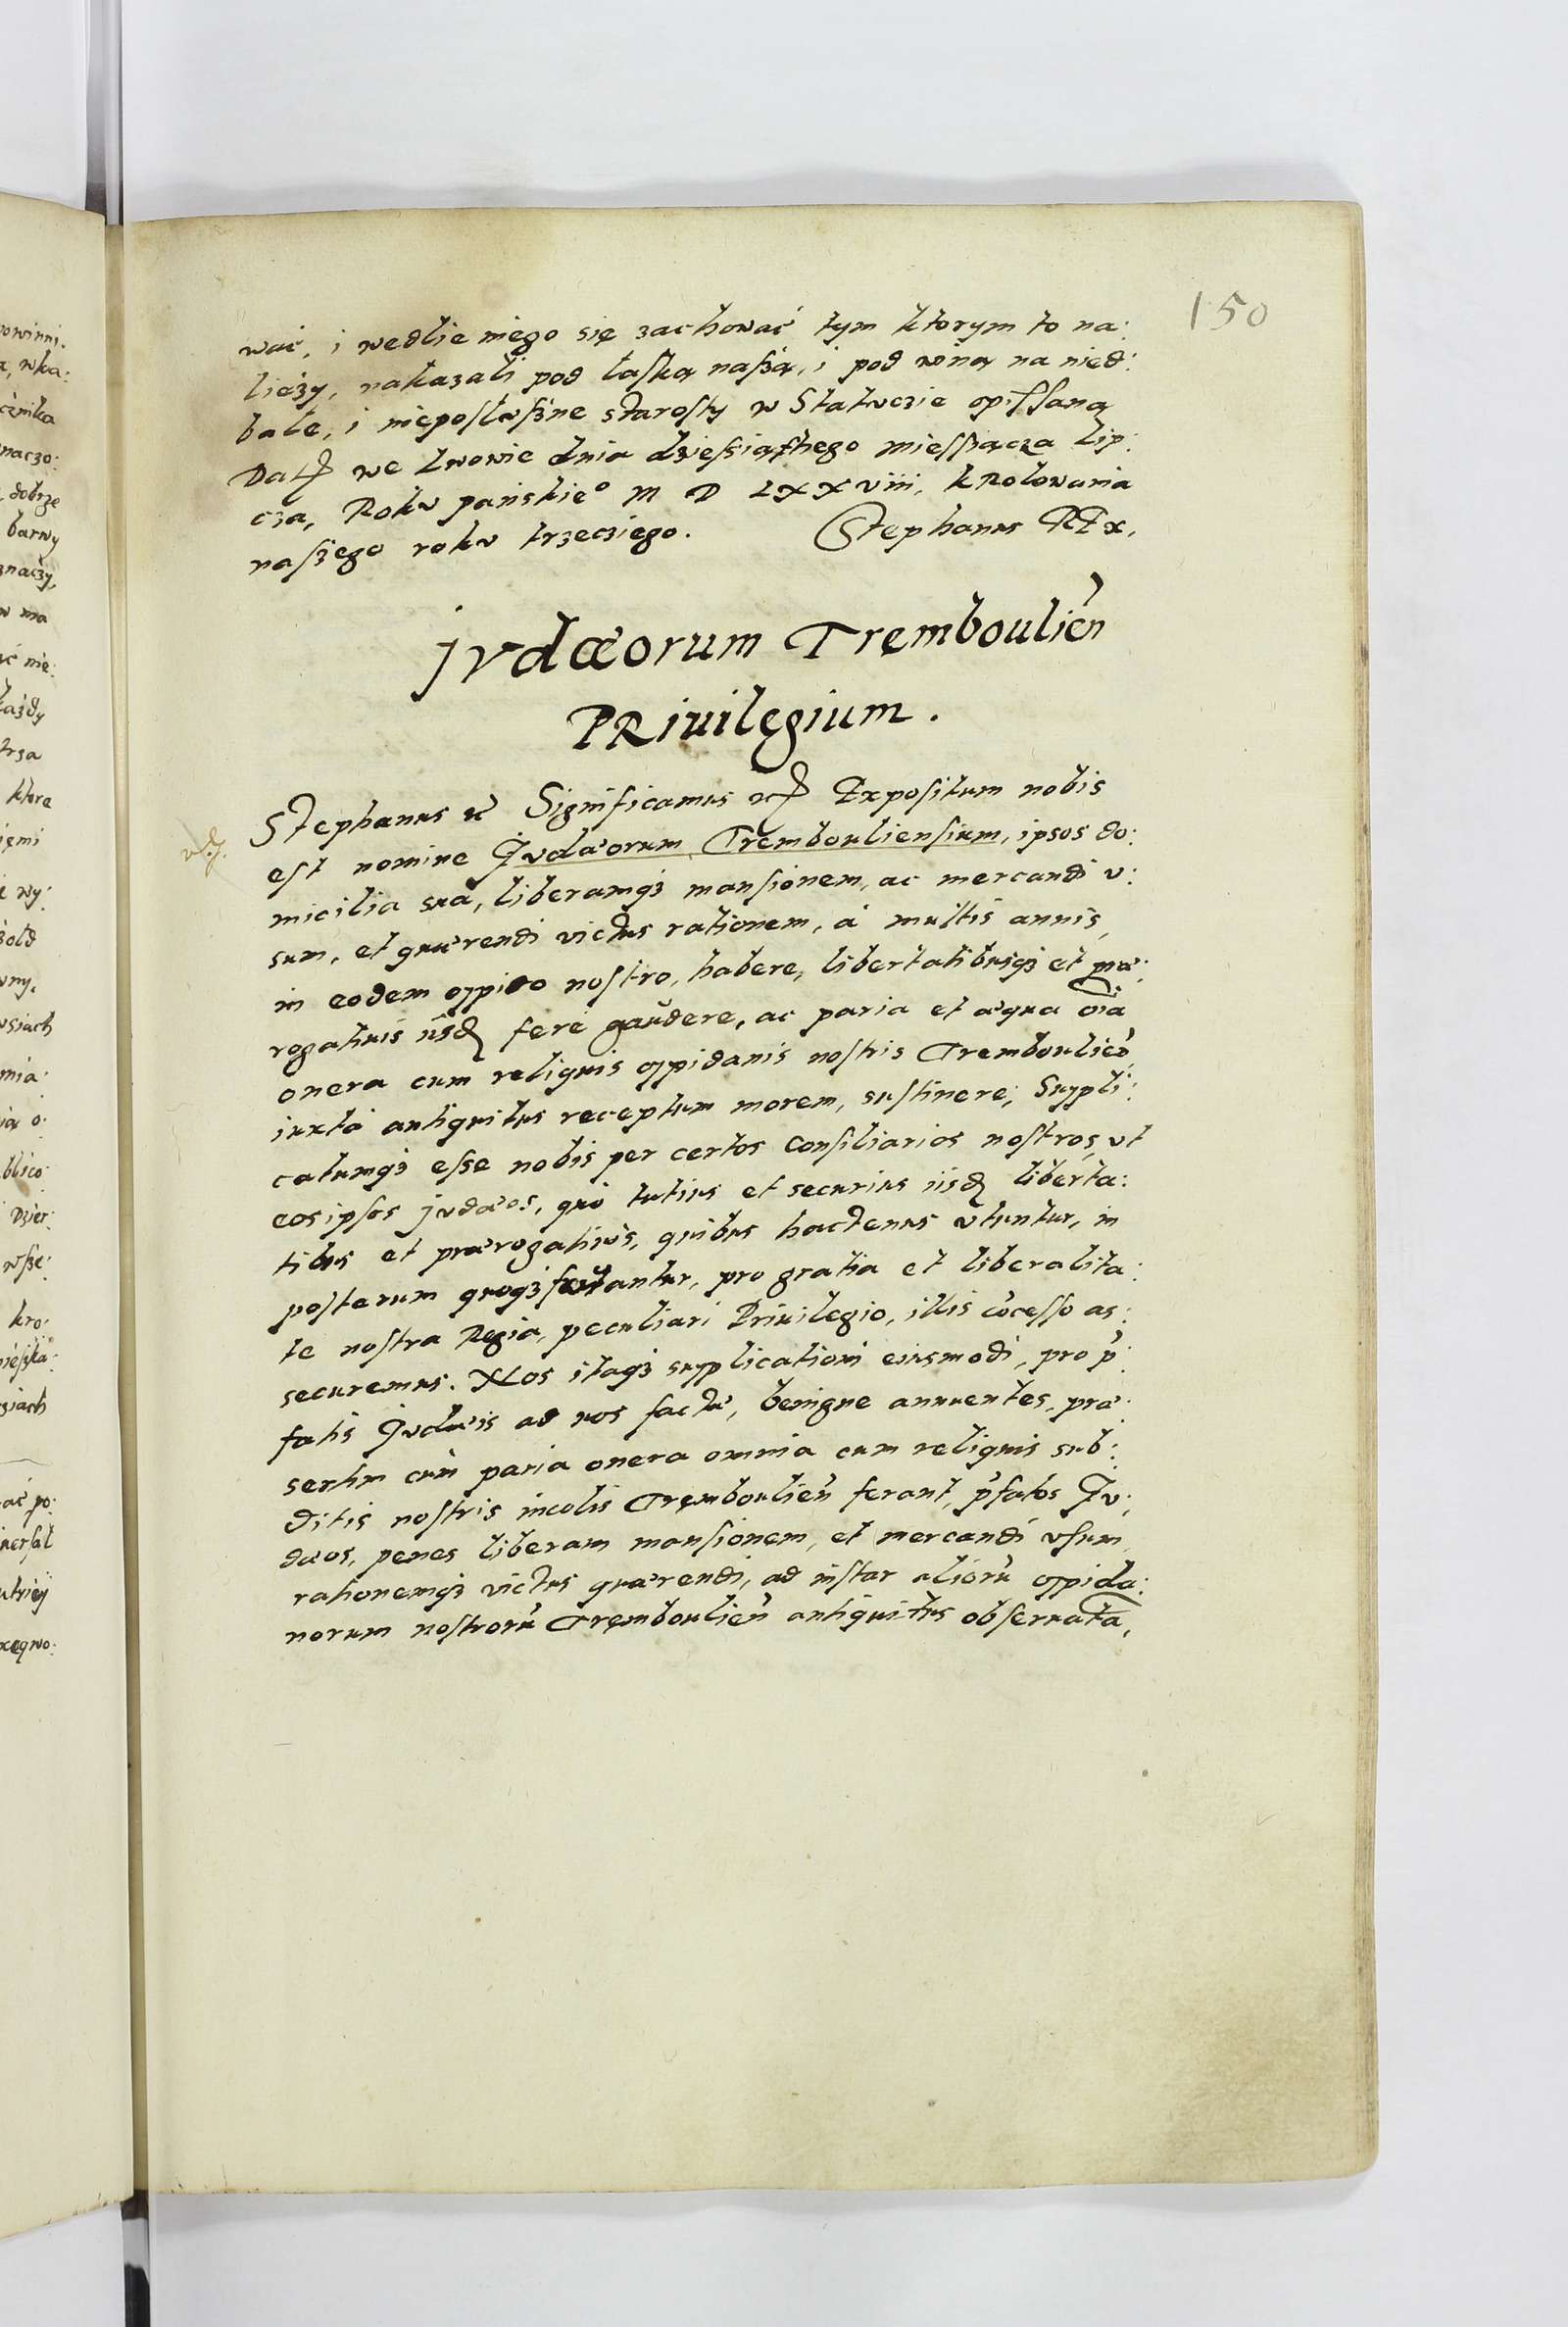 150
wać, i wedlie niego się zachować tym ktorym to na:
lieży, nakazali pod łaską naszą, i pod winą na nied:
bałe, i nieposłuszne starosty w Statuczie opissaną
Dat we Lwowie dnia dziesiąthego miessiącza Lip:
cza, Roku pańskie° M D LXXVIII, kRolowania
naszego roku trzecziego. Stephanus REx.
Jvdæorum Tremboulień
PRiuilegium.
Stephanus &c Significamus &c Expositum nobis
est nomine Jvdæorum Trembouliensium, ipsos do:
micilia sua, liberamq3 mansionem, ac mercandi v:
sum, et quærendi victus rationem, á multis annis,
in eodem oppido nostro, habere, libertatibusq3 et præ:
rogatiuis iisd fere gaudere, ac paria et æqua oia
onera cum reliquis oppidanis nostris Tremboulień
iuxta antiquitus receptum morem, sustinere; Suppli:
catumq3 esse nobis per certos Consiliarios nostros, vt
eos ipsos jvdæos, quó tutius et securius iisd liberta:
tibus et prærogatiuis, quibus hactenus vtuntur, in
posterum quoq3 fruantur, pro gratia et liberalita:
te nostra Regia, peculiari Priuilegio, illis cōcesso as:
securemus. Nos itaq3 supplicationi eiusmodi, pro p̄:
fatis Jvdæis ad nos factæ, benigne annuentes, præ:
sertim cum paria onera omnia cum reliquis sub:
ditis nostris incolis Tremboulień ferant, p̄fatos Jv:
dæos, penes liberam mansionem, et mercandi vsum,
rationemq3 victus quærendi, ad instar aliorū oppida:
norum nostrorū Tremboulień antiquitus obseruata,